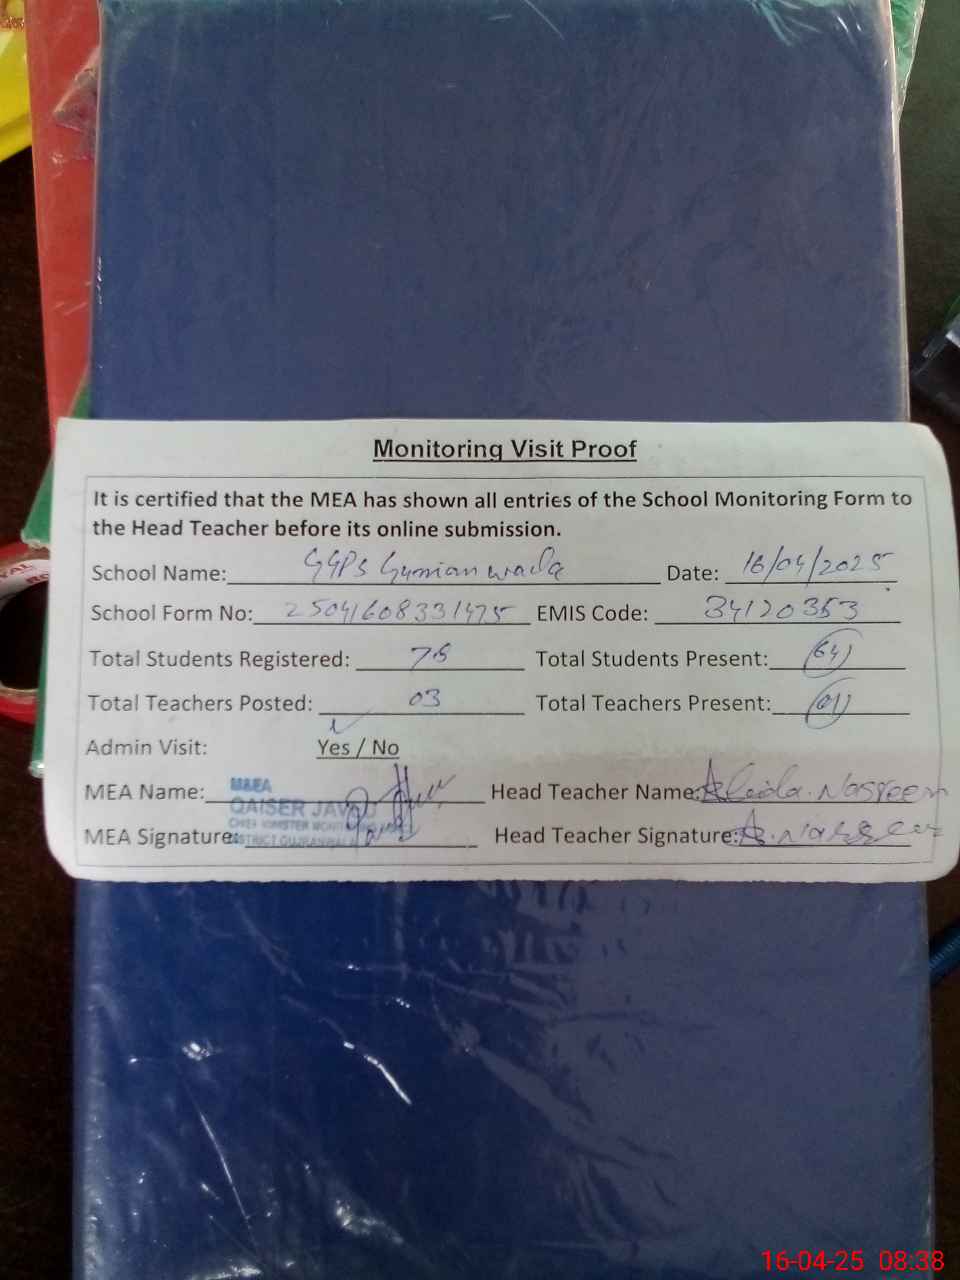 Monitoring Visit Proof
It is certified that the MEA has shown all entries of the School Monitoring Form to
the Head Teacher before its online submission.
School Name: GGPS Gunian wala Date: 16/04/2025
School Form No: 25041608331475 EMIS Code: 34120353
Total Students Registered: 78 Total Students Present: 64
Total Teachers Posted: 03 Total Teachers Present: 01
Admin Visit: Yes / No
M&EA
MEA Name: QAISER JAVAID Head Teacher Name: Nasreen
CHIEF MINISTER
MEA Signature: DISTRICT GUJRANWALA Head Teacher Signature: A. Nasreen
16-04-25 08:38